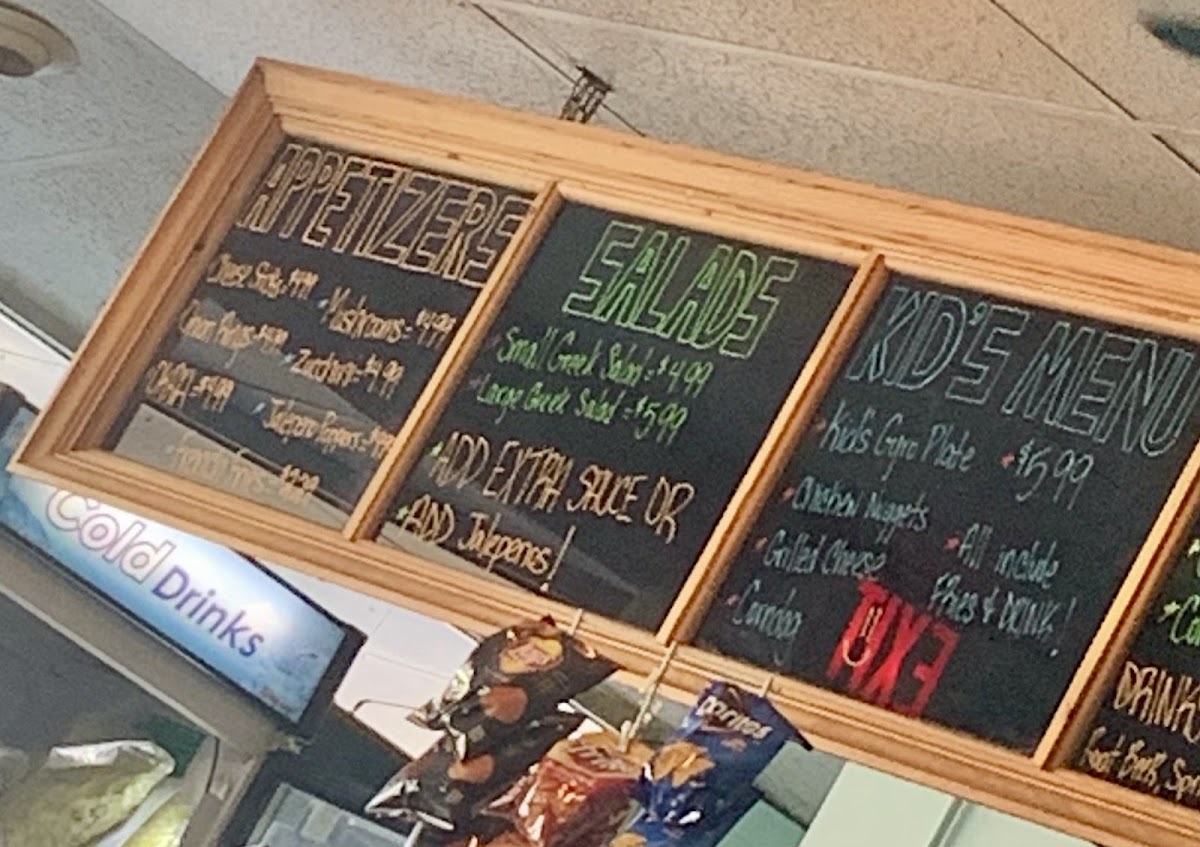 APPETIZERS
Cheese Sticks $4.99
Mushrooms - $4.99
Onion Rings - $4.99
Zucchini - $4.99
OKRA - $4.99
Jalepeno Poppers - $4.99
French Fries - $2.29
SALADS
Small Greek Salad - $4.99
Large Greek Salad - $5.99
ADD EXTRA SAUCE OR
ADD Jalepenos!
KID'S MENU
Kid's Gyro Plate $5.99
Chicken Nuggets
Grilled Cheese
Corndog
All include
Fries & DRINK!
EXIT
DRINK
Root Beer, Sp
Cold Drinks
Doritos